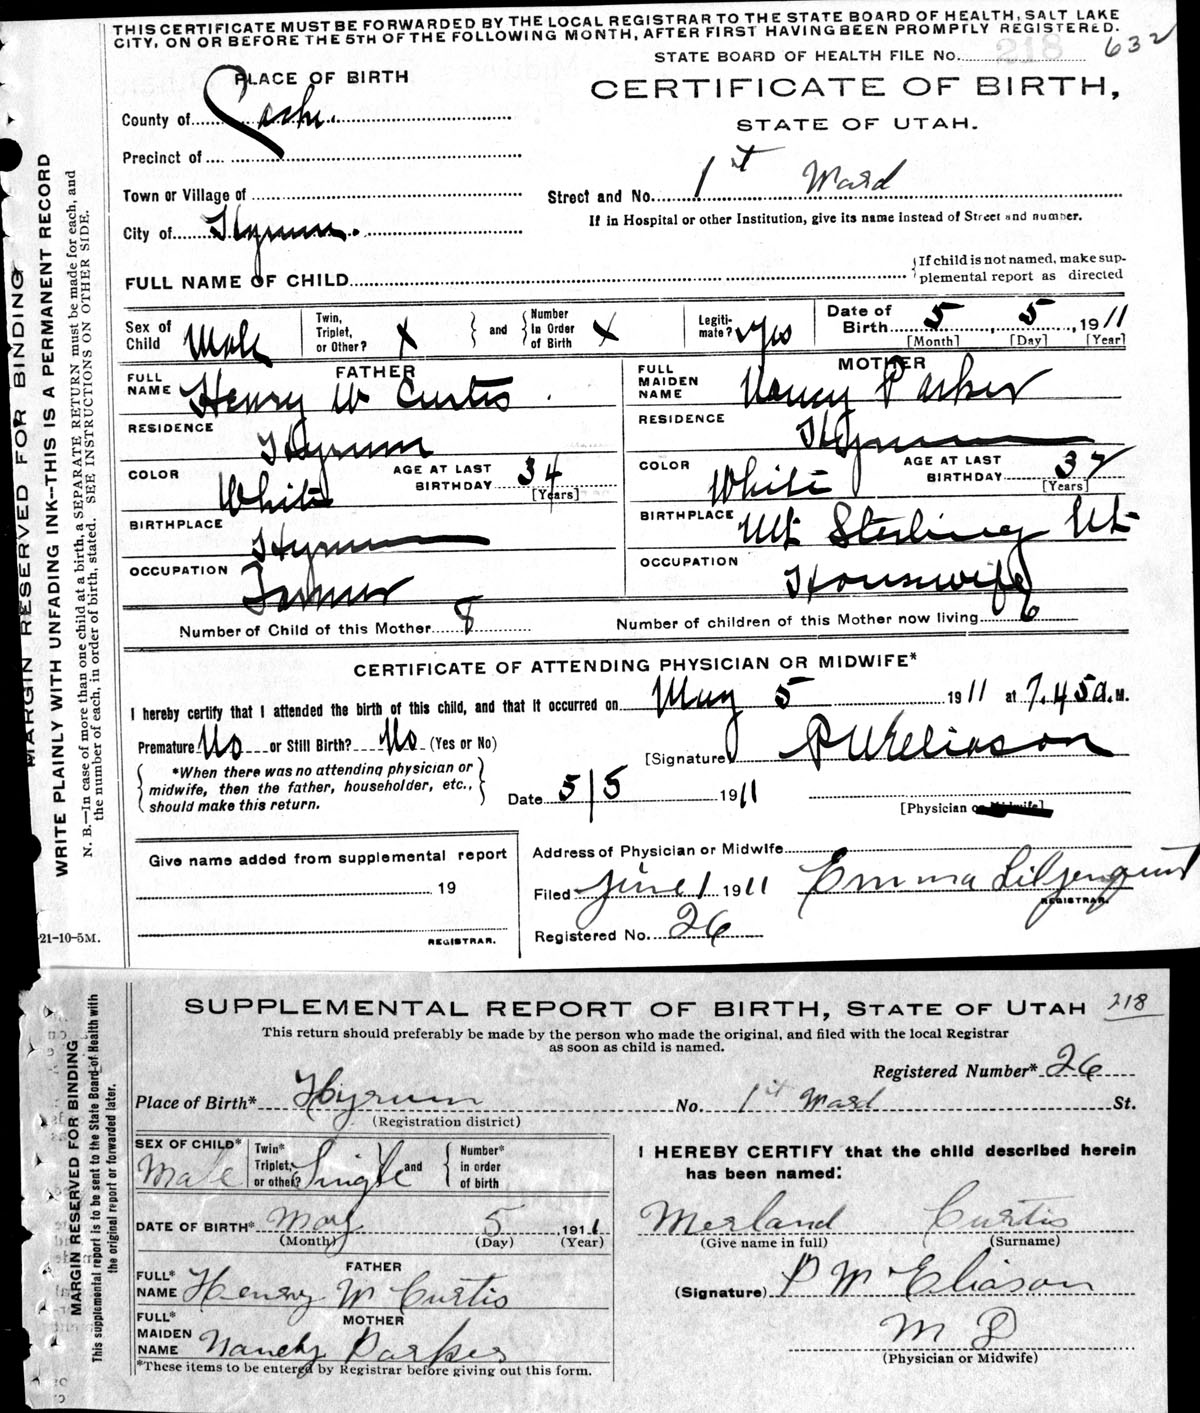 THIS CERTIFICATE MUST BE FORWARDED BY THE LOCAL REGISTRAR TO THE STATE BOARD OF HEALTH, SALT LAKE
CITY, ON OR BEFORE THE 5TH OF THE FOLLOWING MONTH, AFTER FIRST HAVING BEEN PROMPTLY REGISTERED.
STATE BOARD OF HEALTH FILE No. 218 632
PLACE OF BIRTH
CERTIFICATE OF BIRTH,
STATE OF UTAH.
County of Cache.
Precinct of
Town or Village of
Street and No. 1st Ward
If in Hospital or other Institution, give its name instead of Street and number.
City of Hyrum.
FULL NAME OF CHILD
{If child is not named, make sup-
plemental report as directed
Sex of Child Male
Twin, Triplet, or Other? X
and
Number In Order of Birth X
Legiti-mate? Yes
Date of Birth 5, 5, 1911
[Month] [Day] [Year]
FATHER
FULL NAME Henry W Curtis
RESIDENCE Hyrum
COLOR White
AGE AT LAST BIRTHDAY 34
[Years]
BIRTHPLACE Hyrum
OCCUPATION Farmer
MOTHER
FULL MAIDEN NAME Nancy Parker
RESIDENCE Hyrum
COLOR White
AGE AT LAST BIRTHDAY 37
[Years]
BIRTHPLACE Mt Sterling Ut
OCCUPATION Housewife
Number of Child of this Mother 8
Number of children of this Mother now living 6
CERTIFICATE OF ATTENDING PHYSICIAN OR MIDWIFE*
I hereby certify that I attended the birth of this child, and that it occurred on May 5 1911 at 7.45 a. M.
Premature No or Still Birth? No (Yes or No)
[Signature] P W Eliason
{*When there was no attending physician or
midwife, then the father, householder, etc.,
should make this return.}
Date 5/5 1911
[Physician or Midwife]
Give name added from supplemental report
19
REGISTRAR.
Address of Physician or Midwife
Filed June 1 1911 Emma Liljenquist
REGISTRAR.
Registered No. 26
MARGIN RESERVED FOR BINDING
WRITE PLAINLY WITH UNFADING INK--THIS IS A PERMANENT RECORD
N. B.—In case of more than one child at a birth, a SEPARATE RETURN must be made for each, and
the number of each, in order of birth, stated. SEE INSTRUCTIONS ON OTHER SIDE.
21-10-5M.
SUPPLEMENTAL REPORT OF BIRTH, STATE OF UTAH 218
This return should preferably be made by the person who made the original, and filed with the local Registrar
as soon as child is named.
Registered Number* 26
Place of Birth* Hyrum No. 1st Ward St.
(Registration district)
SEX OF CHILD* Male
Twin* Triplet, or other? Single
and
Number* in order of birth
DATE OF BIRTH* May 5 1911
(Month) (Day) (Year)
FATHER
FULL* NAME Henry W Curtis
MOTHER
FULL* MAIDEN NAME Nancy Parker
*These items to be entered by Registrar before giving out this form.
I HEREBY CERTIFY that the child described herein
has been named:
Merland Curtis
(Give name in full) (Surname)
(Signature) P W Eliason
M D
(Physician or Midwife)
MARGIN RESERVED FOR BINDING
This supplemental report is to be sent to the State Board of Health with
the original report or forwarded later.